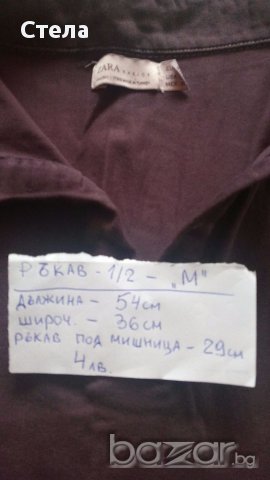 Стела
ZARA
РЪКАВ - 1/2 - „М"
ДЪЛЖИНА - 54 см
ШИРОЧ. - 36 см
РЪКАВ ПОД МИШНИЦА - 29 см
4 лв.
bazar.бг